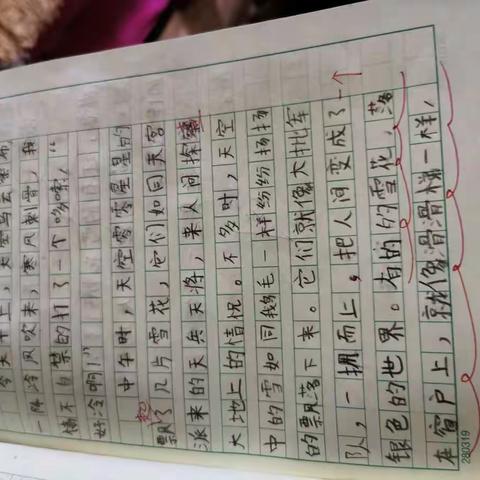 今天早上，天空乌云密布
一阵冷风吹来，寒风刺骨，我
情不自禁的打了一个喷嚏，“
好冷啊！”
中午时，天空零零星星的
飘了几片雪花，它们如同天宫
派来的天兵天将，来人间探索
大地上的情况。不多时，天空
中的雪如同鹅毛一样纷纷扬扬
的飘落下来。它们就像大批军
队，一拥而上，把人间变成了
银色的世界。有的的雪花，落
在窗户上，就像滑滑梯一样，
280319